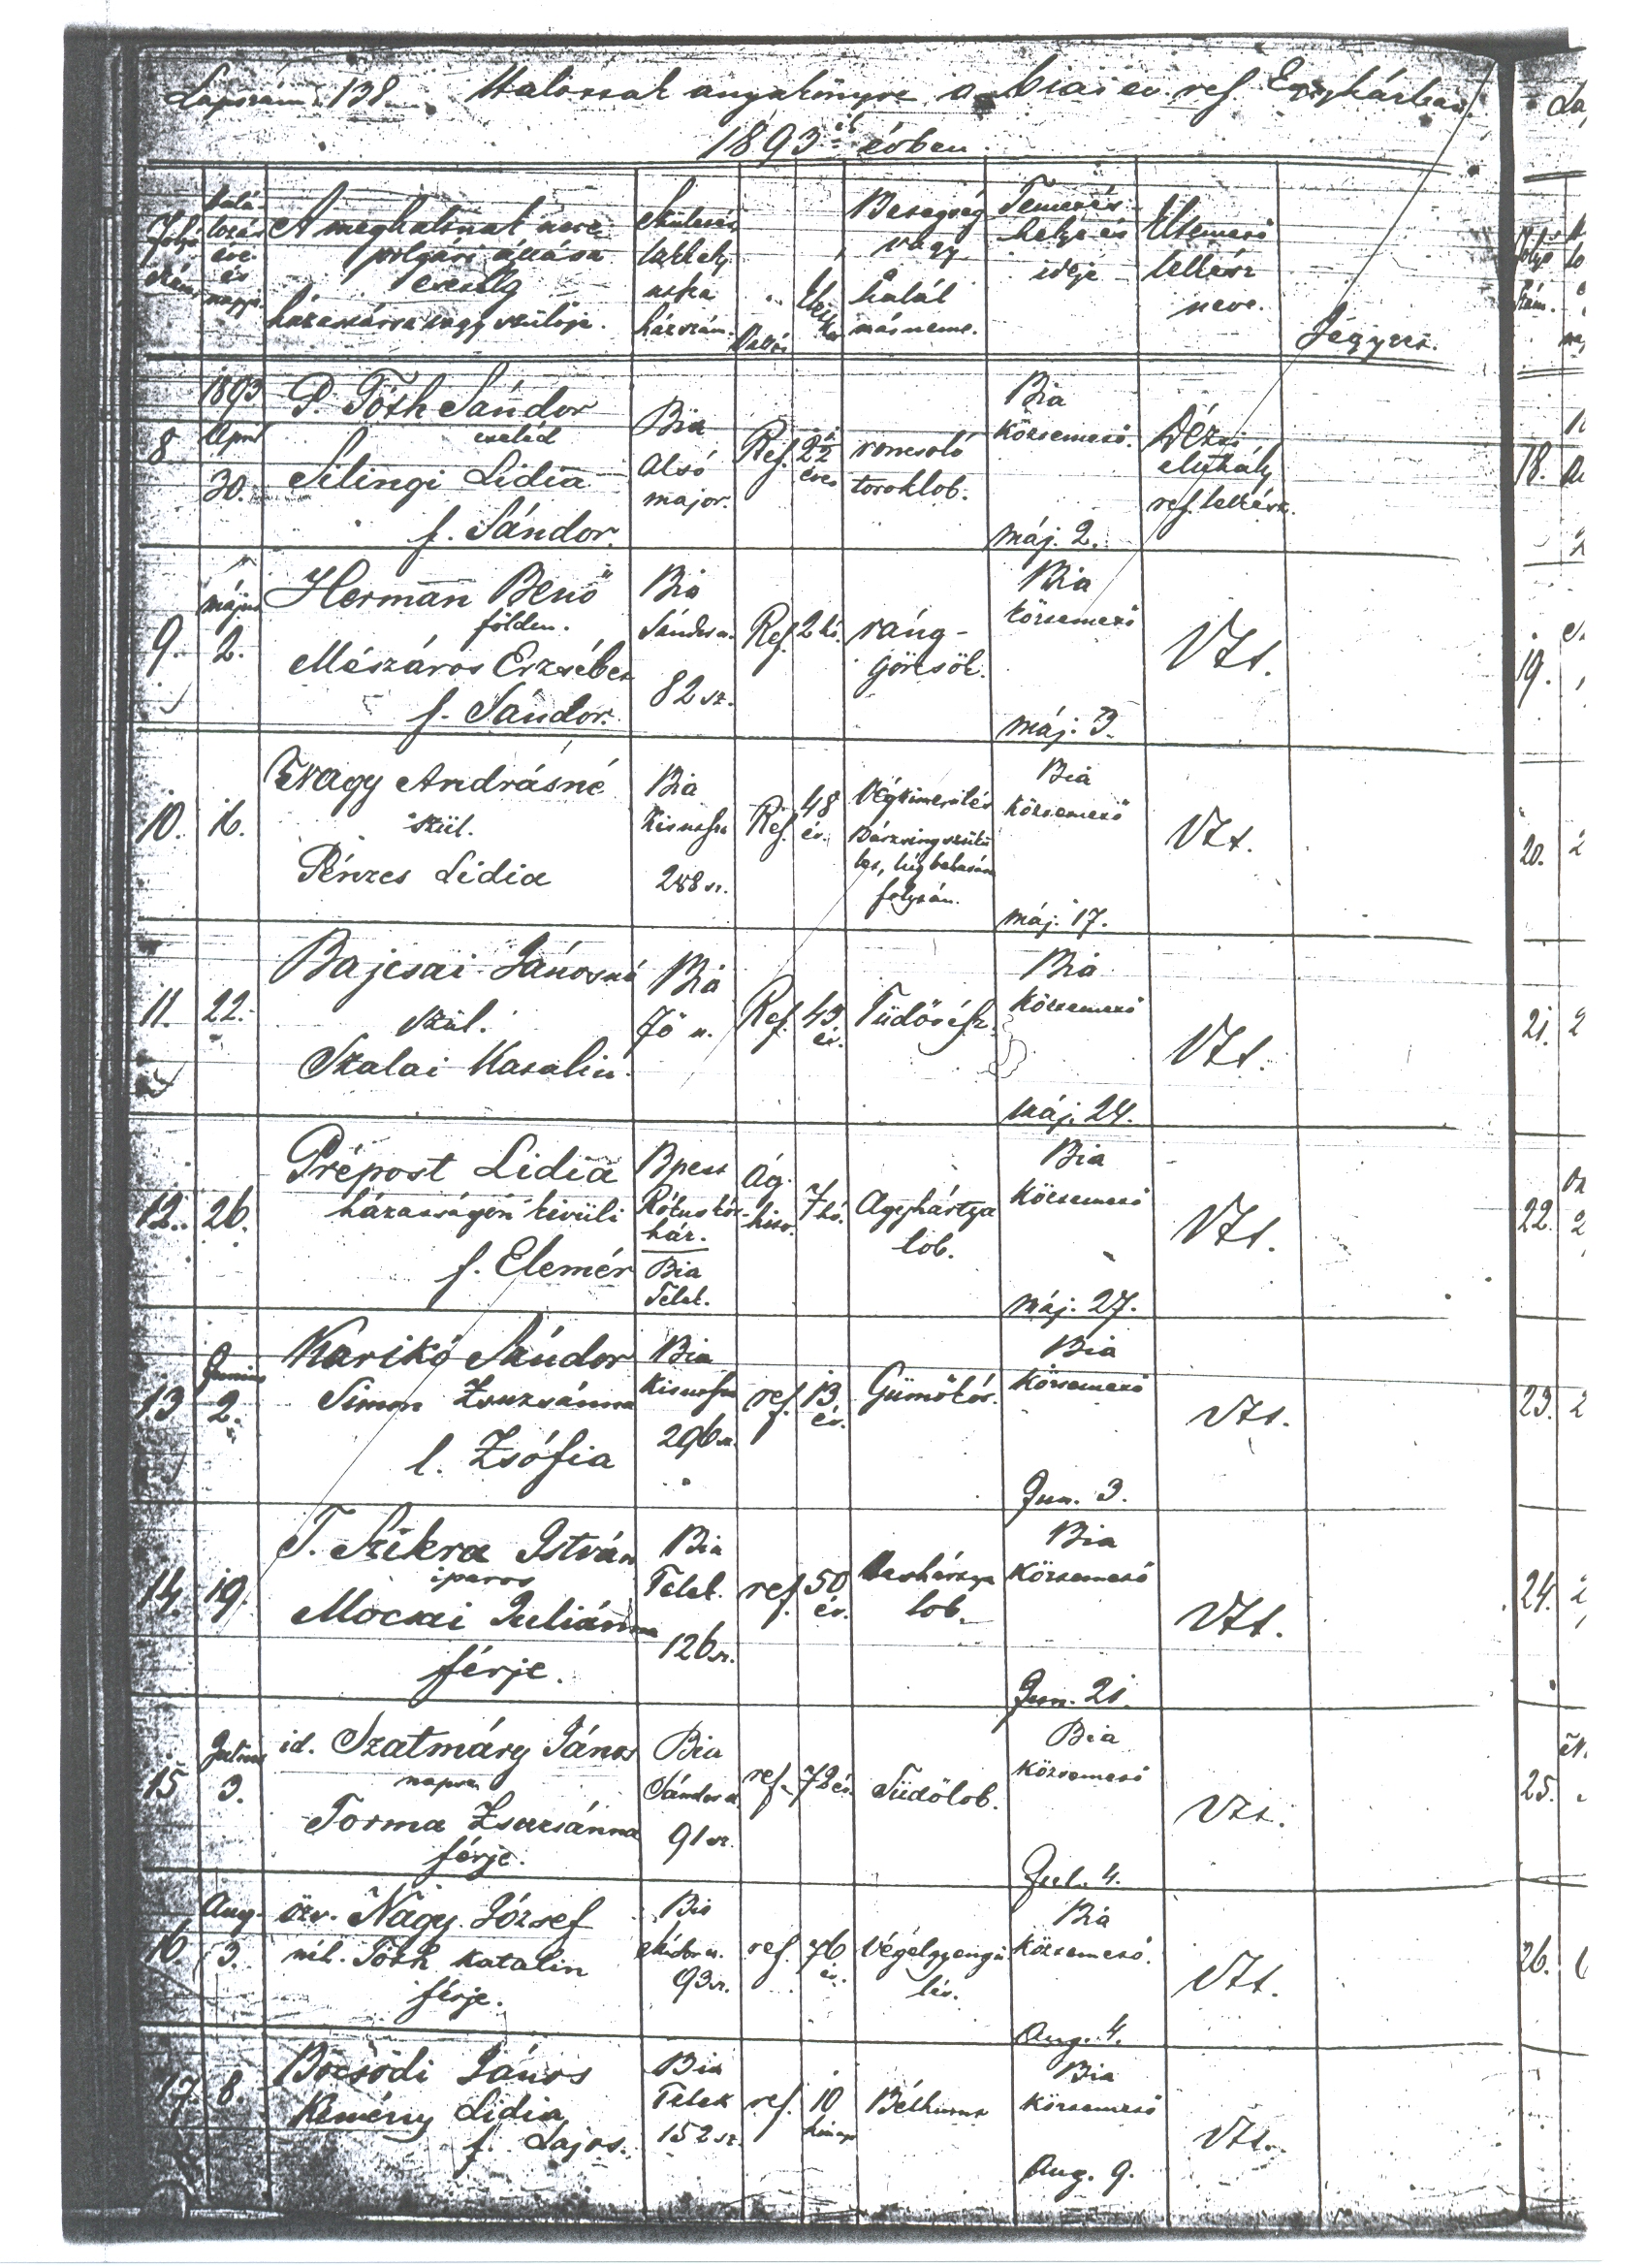 Lapszám 138. Halottak anyakönyve a biai ev. ref. Egyházban
1893ik évben.
Folyó szám
Halálozás éve és napja
A meghaltnak neve
polgári állása
esetleg
házastársa vagy szülője.
Születési
lakhely
utcza
házszám.
Vallás
Betegség
vagy
halál
másneme.
Temetés
helye és
ideje
Eltemető
lelkész
neve.
Jegyzet.
8
1893
April
30.
P. Tóth Sándor
cseléd
Silingi Lidia
f. Sándor.
Bia
Alsó
major.
Ref.
2½
éves
roncsoló
toroklob.
Bia
köztemető.
máj. 2.
Vézsi
Mihály
ref. lelkész.
9.
május
2.
Herman Benő
földm.
Mészáros Erzsébet
f. Sándor.
Bia
Sándor u.
82 sz.
Ref.
2 hó.
ráng-
görcsök.
Bia
köztemető
máj. 3.
Ugt.
10.
16.
Nagy Andrásné
szül.
Pénzes Lidia
Bia
Kis utcza
288 sz.
Ref.
48
év.
Végkimerülés
folytán.
Bia
köztemető
máj. 17.
Ugt.
11.
22.
Bajcsai Jánosné
szül.
Szalai Katalin.
Bia
Fő u.
Ref.
43
év.
Tüdővész.
Bia
köztemető
máj. 24.
Ugt.
12.
26.
Prépost Lidia
házasságon kivüli
f. Elemér
Bpest
Rókus kór-
ház.
Bia
Telek.
Ág.
hitv.
7 hó.
Agyhártya
lob.
Bia
köztemető
máj. 27.
Ugt.
13
Junius
2.
Karikó Sándor
Simon Zsuzsánna
l. Zsófia
Bia
Kis utcza
296 sz.
ref.
13
év.
Gümőkór.
Bia
köztemető
Jun. 3.
Ugt.
14.
19.
T. Szikra István
iparos
Mocsai Juliánna
férje.
Bia
Telek.
126 sz.
ref.
50
év.
Hashártya
lob.
Bia
köztemető
Jun. 21.
Ugt.
15
Julius
3.
id. Szatmáry János
napsz.
Torma Zsuzsánna
férje.
Bia
Sándor u.
91 sz.
ref.
72 év.
Tüdőlob.
Bia
köztemető
Jul. 4.
Ugt.
16.
Aug.
3.
özv. Nagy József
néh. Tóth Katalin
férje.
Bia
Sándor u.
93 sz.
ref.
76
év.
Végelgyengü
lés.
Bia
köztemető.
Aug. 4.
Ugt.
17.
8.
Bocsódi János
Kemény Lidia
f. Lajos.
Bia
Telek
152 sz.
ref.
10
hónap
Bélhurut
Bia
köztemető
Aug. 9.
Ugt.
18.
19.
20.
21.
22.
23.
24.
25.
26.